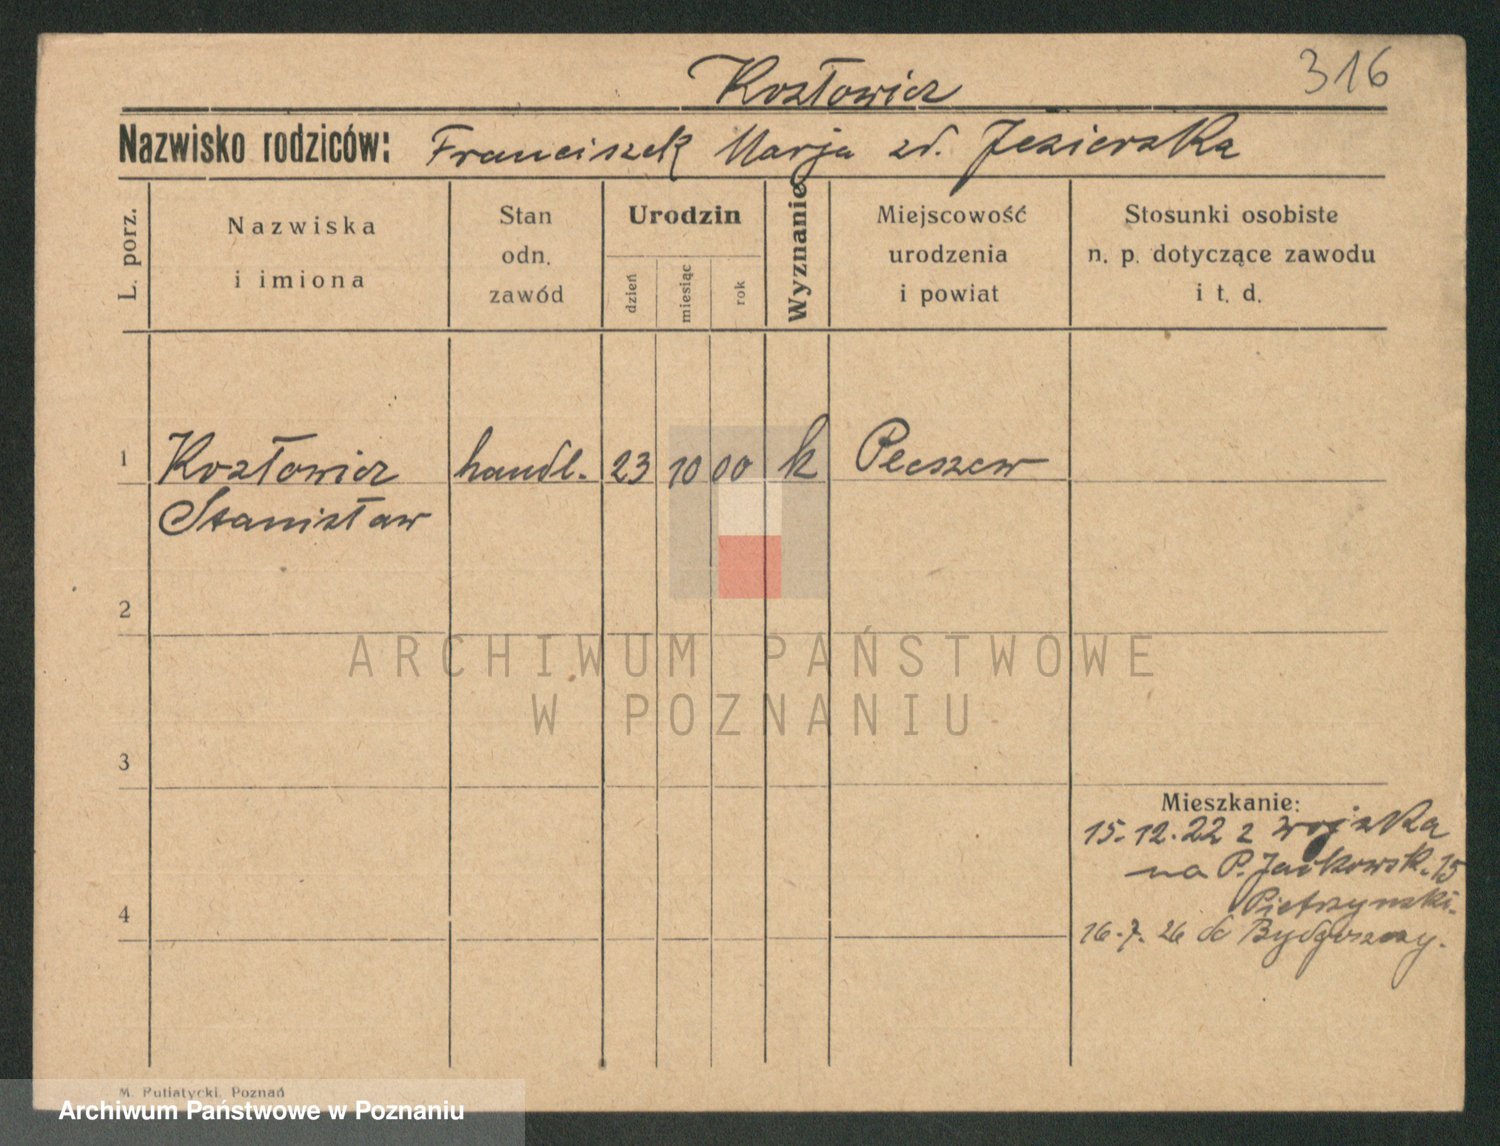 316
Kozłowicz
Nazwisko rodziców: Franciszek Marja zd. Jezierska
L. porz.
Nazwiska
i imiona
Stan
odn.
zawód
Urodzin
dzień
miesiąc
rok
Wyznanie
Miejscowość
urodzenia
i powiat
Stosunki osobiste
n. p. dotyczące zawodu
i t. d.
1 Kozłowicz handl. 23 10 00 k Pleszew
Stanisław
2
3
4
Mieszkanie:
15.12.22 z wojska
na P. Jackowsk. 15
Pietrzynski.
16.7.26 do Bydgoszczy.
ARCHIWUM PAŃSTWOWE
W POZNANIU
M. Putiatycki, Poznań
Archiwum Państwowe w Poznaniu